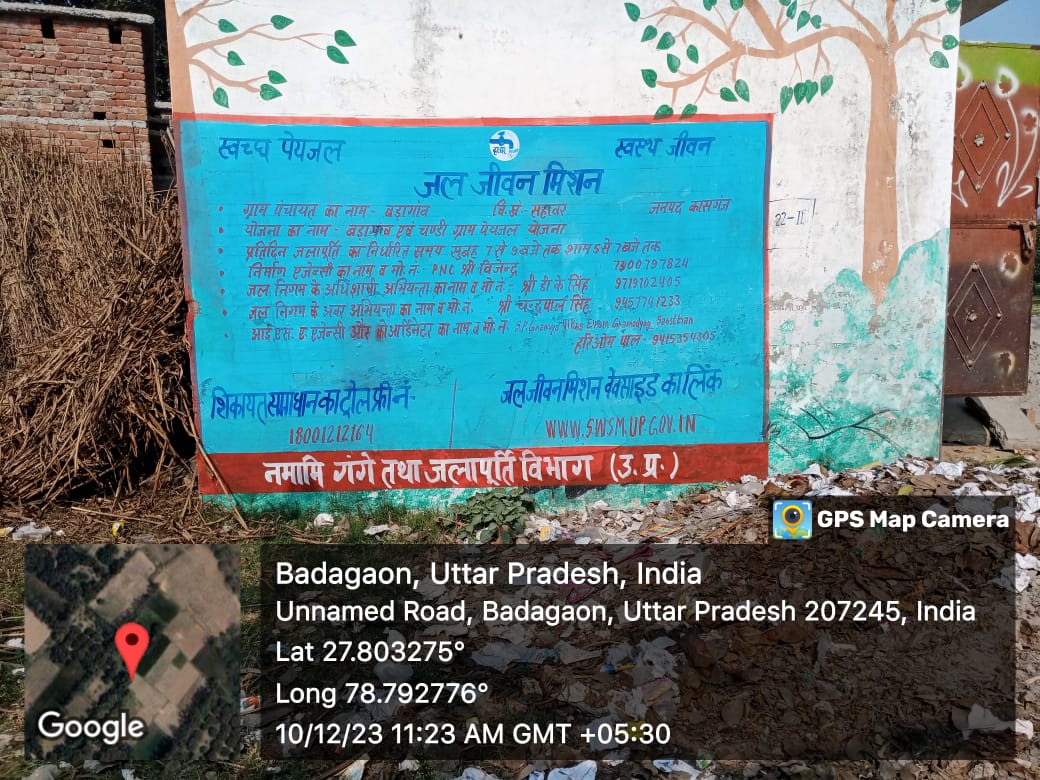 स्वच्छ पेयजल स्वस्थ जीवन
जल जीवन मिशन
• ग्राम पंचायत का नाम - बड़ागांव वि.खं.- सहावर जनपद कासगंज
• योजना का नाम - बड़ागांव एवं चण्डी ग्राम पेयजल योजना
• प्रतिदिन जलापूर्ति का निर्धारित समय सुबह 7 से 9 बजे तक शाम 5 से 7 बजे तक
• निर्माण एजेन्सी का नाम व मो. नं- PNC श्री विजेन्द्र 7300797824
• जल निगम के अधिशासी अभियन्ता का नाम व मो. नं- श्री डी के सिंह 9719102405
• जल निगम के अवर अभियन्ता का नाम व मो. नं. श्री चन्द्रपाल सिंह 9457741233
• आई. एस. ए एजेन्सी और कोआर्डिनेटर का नाम व मो. नं Evam Sansthan
हरिओम पाल- 9415354305
शिकायत समाधान का ट्रोल फ्री नं- जल जीवन मिशन वेबसाइड का लिंक
18001212164 WWW.SWSM.UP.GOV.IN
नमामि गंगे तथा जलापूर्ति विभाग (उ. प्र.)
22-11
GPS Map Camera
Badagaon, Uttar Pradesh, India
Unnamed Road, Badagaon, Uttar Pradesh 207245, India
Lat 27.803275°
Long 78.792776°
10/12/23 11:23 AM GMT +05:30
Google